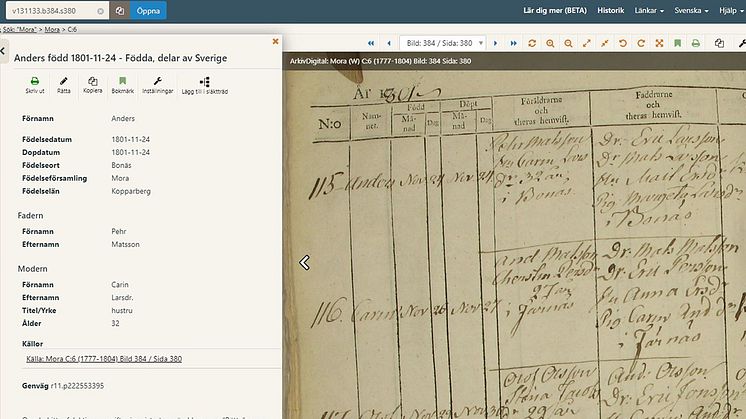 v131133.b384.s380
Öppna
Lär dig mer (BETA)
Historik
Länkar
Svenska
Hjälp
Sök: "Mora" > Mora > C:6
Bild: 384 / Sida: 380
Anders född 1801-11-24 - Födda, delar av Sverige
Skriv ut
Rätta
Kopiera
Bokmärk
Inställningar
Lägg till i släktträd
Förnamn Anders
Födelsedatum 1801-11-24
Dopdatum 1801-11-24
Födelseort Bonäs
Födelseförsamling Mora
Födelselän Kopparberg
Fadern
Förnamn Pehr
Efternamn Matsson
Modern
Förnamn Carin
Efternamn Larsdr.
Titel/Yrke hustru
Ålder 32
Källor
Källa: Mora C:6 (1777-1804) Bild 384 / Sida 380
Genväg r11.p222553395
ArkivDigital: Mora (W) C:6 (1777-1804) Bild: 384 Sida: 380
År 1801
N:o
Namnet.
Född
Månad
Dag
Döpt
Månad
Dag
Föräldrarne
och
theras hemvist.
Faddrarne
och
theras hemvist.
115 Anders Nov 24 Nov 24
Pehr Matsson
hu Carin Lars
dr 32 år
i Bonäs
Dr. Eric Larsson
Dr. Mats Larsson
i Bonäs
116. Carin Nov 26 Nov 27
And Matsson
i Färnäs
Dr. Mats Matsson
Dr. Eric Persson
hu Anna Ersdr
Pig. Carin And dr
i Färnäs
Olof Olsson
And. Olsson
Dr. Eric Jonsson